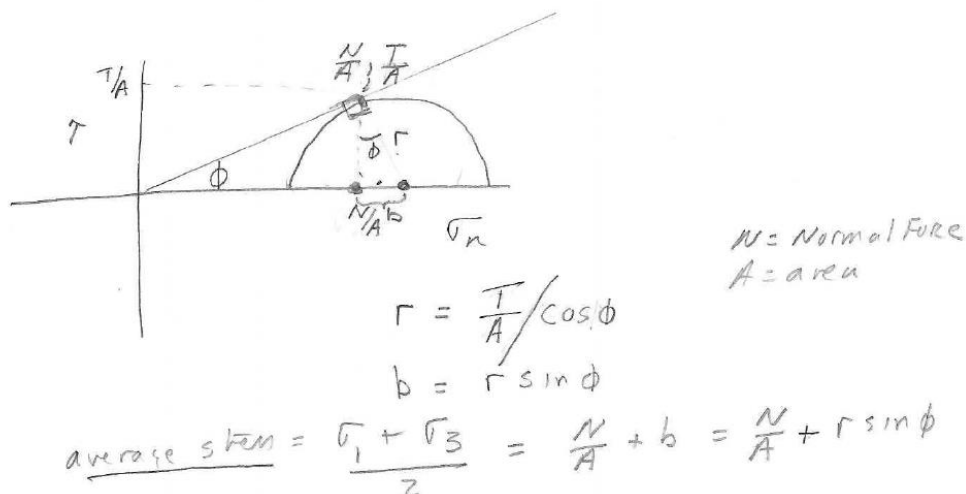 N/A, T/A
T/A
τ
ϕ
ϕ r
N/A b
σn
N = Normal Force
A = area
r = T/A / cos ϕ
b = r sin ϕ
average stress = (σ1 + σ3)/2 = N/A + b = N/A + r sin ϕ